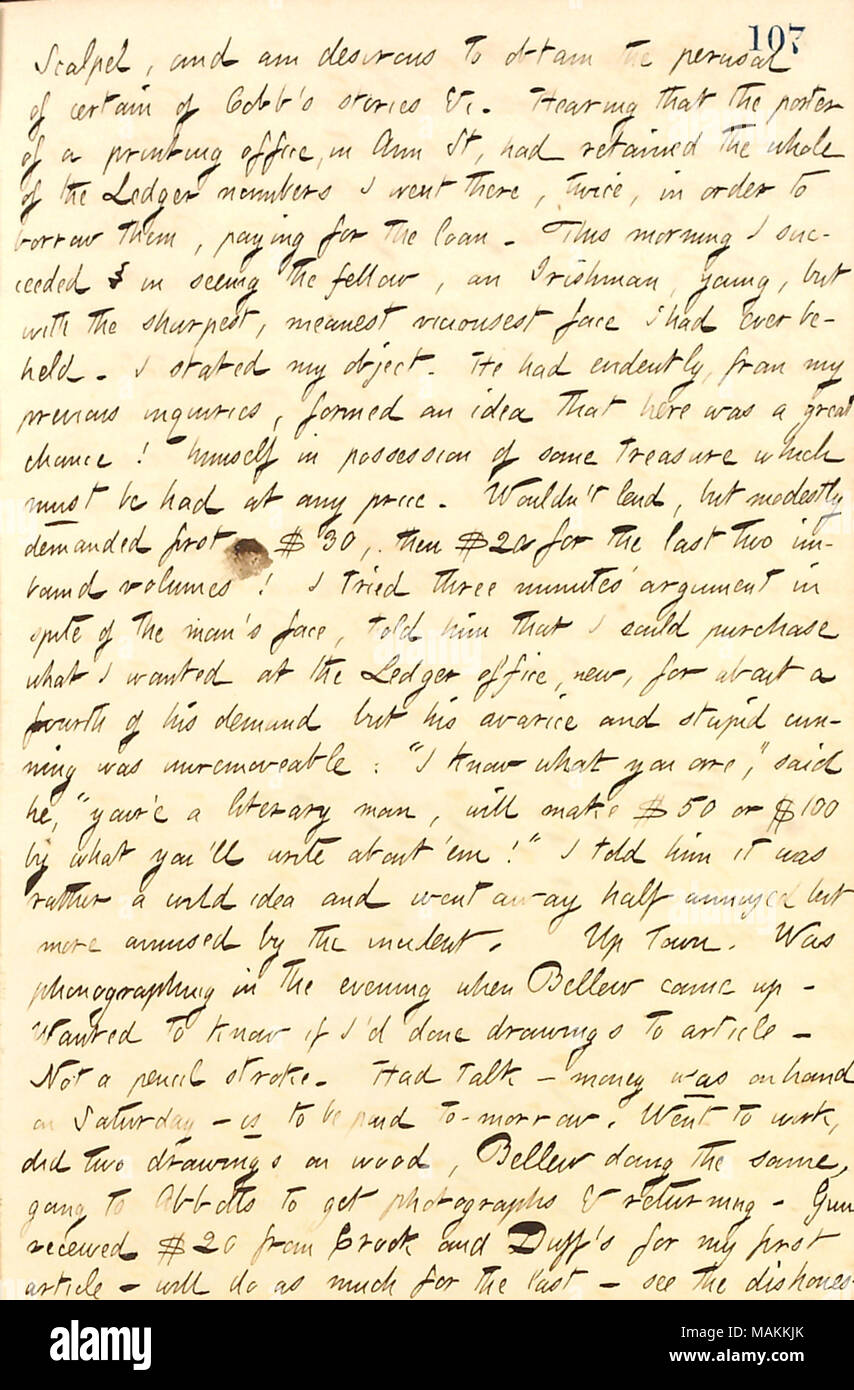 107
Scalpel, and am desirous to obtain the perusal
of certain of Cobb's stories &c. Hearing that the porter
of a printing office, in Ann St, had retained the whole
of the Ledger numbers I went there, twice, in order to
borrow them, paying for the loan. This morning I suc-
ceeded in seeing the fellow, an Irishman, young, but
with the sharpest, meanest viciousest face I had ever be-
held. I stated my object. He had evidently, from my
previous inquiries, formed an idea that here was a great
chance! himself in possession of some treasure which
must be had at any price. Wouldn't lend, but modestly
demanded first $30, then $20 for the last two un-
bound volumes! I tried three minutes' argument in
spite of the man's face, told him that I could purchase
what I wanted at the Ledger office, new, for about a
fourth of his demand but his avarice and stupid cun-
ning was unremoveable: "I know what you are," said
he, "you're a literary man, will make $50 or $100
by what you'll write about 'em!" I told him it was
rather a wild idea and went away half annoyed but
more amused by the incident. Up town. Was
phonographing in the evening when Bellew came up -
Wanted to know if I'd done drawings to article -
Not a pencil stroke. Had talk - money was on hand
on Saturday - is to be paid to-morrow. Went to work,
did two drawings on wood, Bellew doing the same,
going to Abbotts to get photographs & returning - Gun
received $20 from Crook and Duff's for my first
article - will do as much for the last - see the dishones-
alamy
Image ID: MAKKJK
www.alamy.com